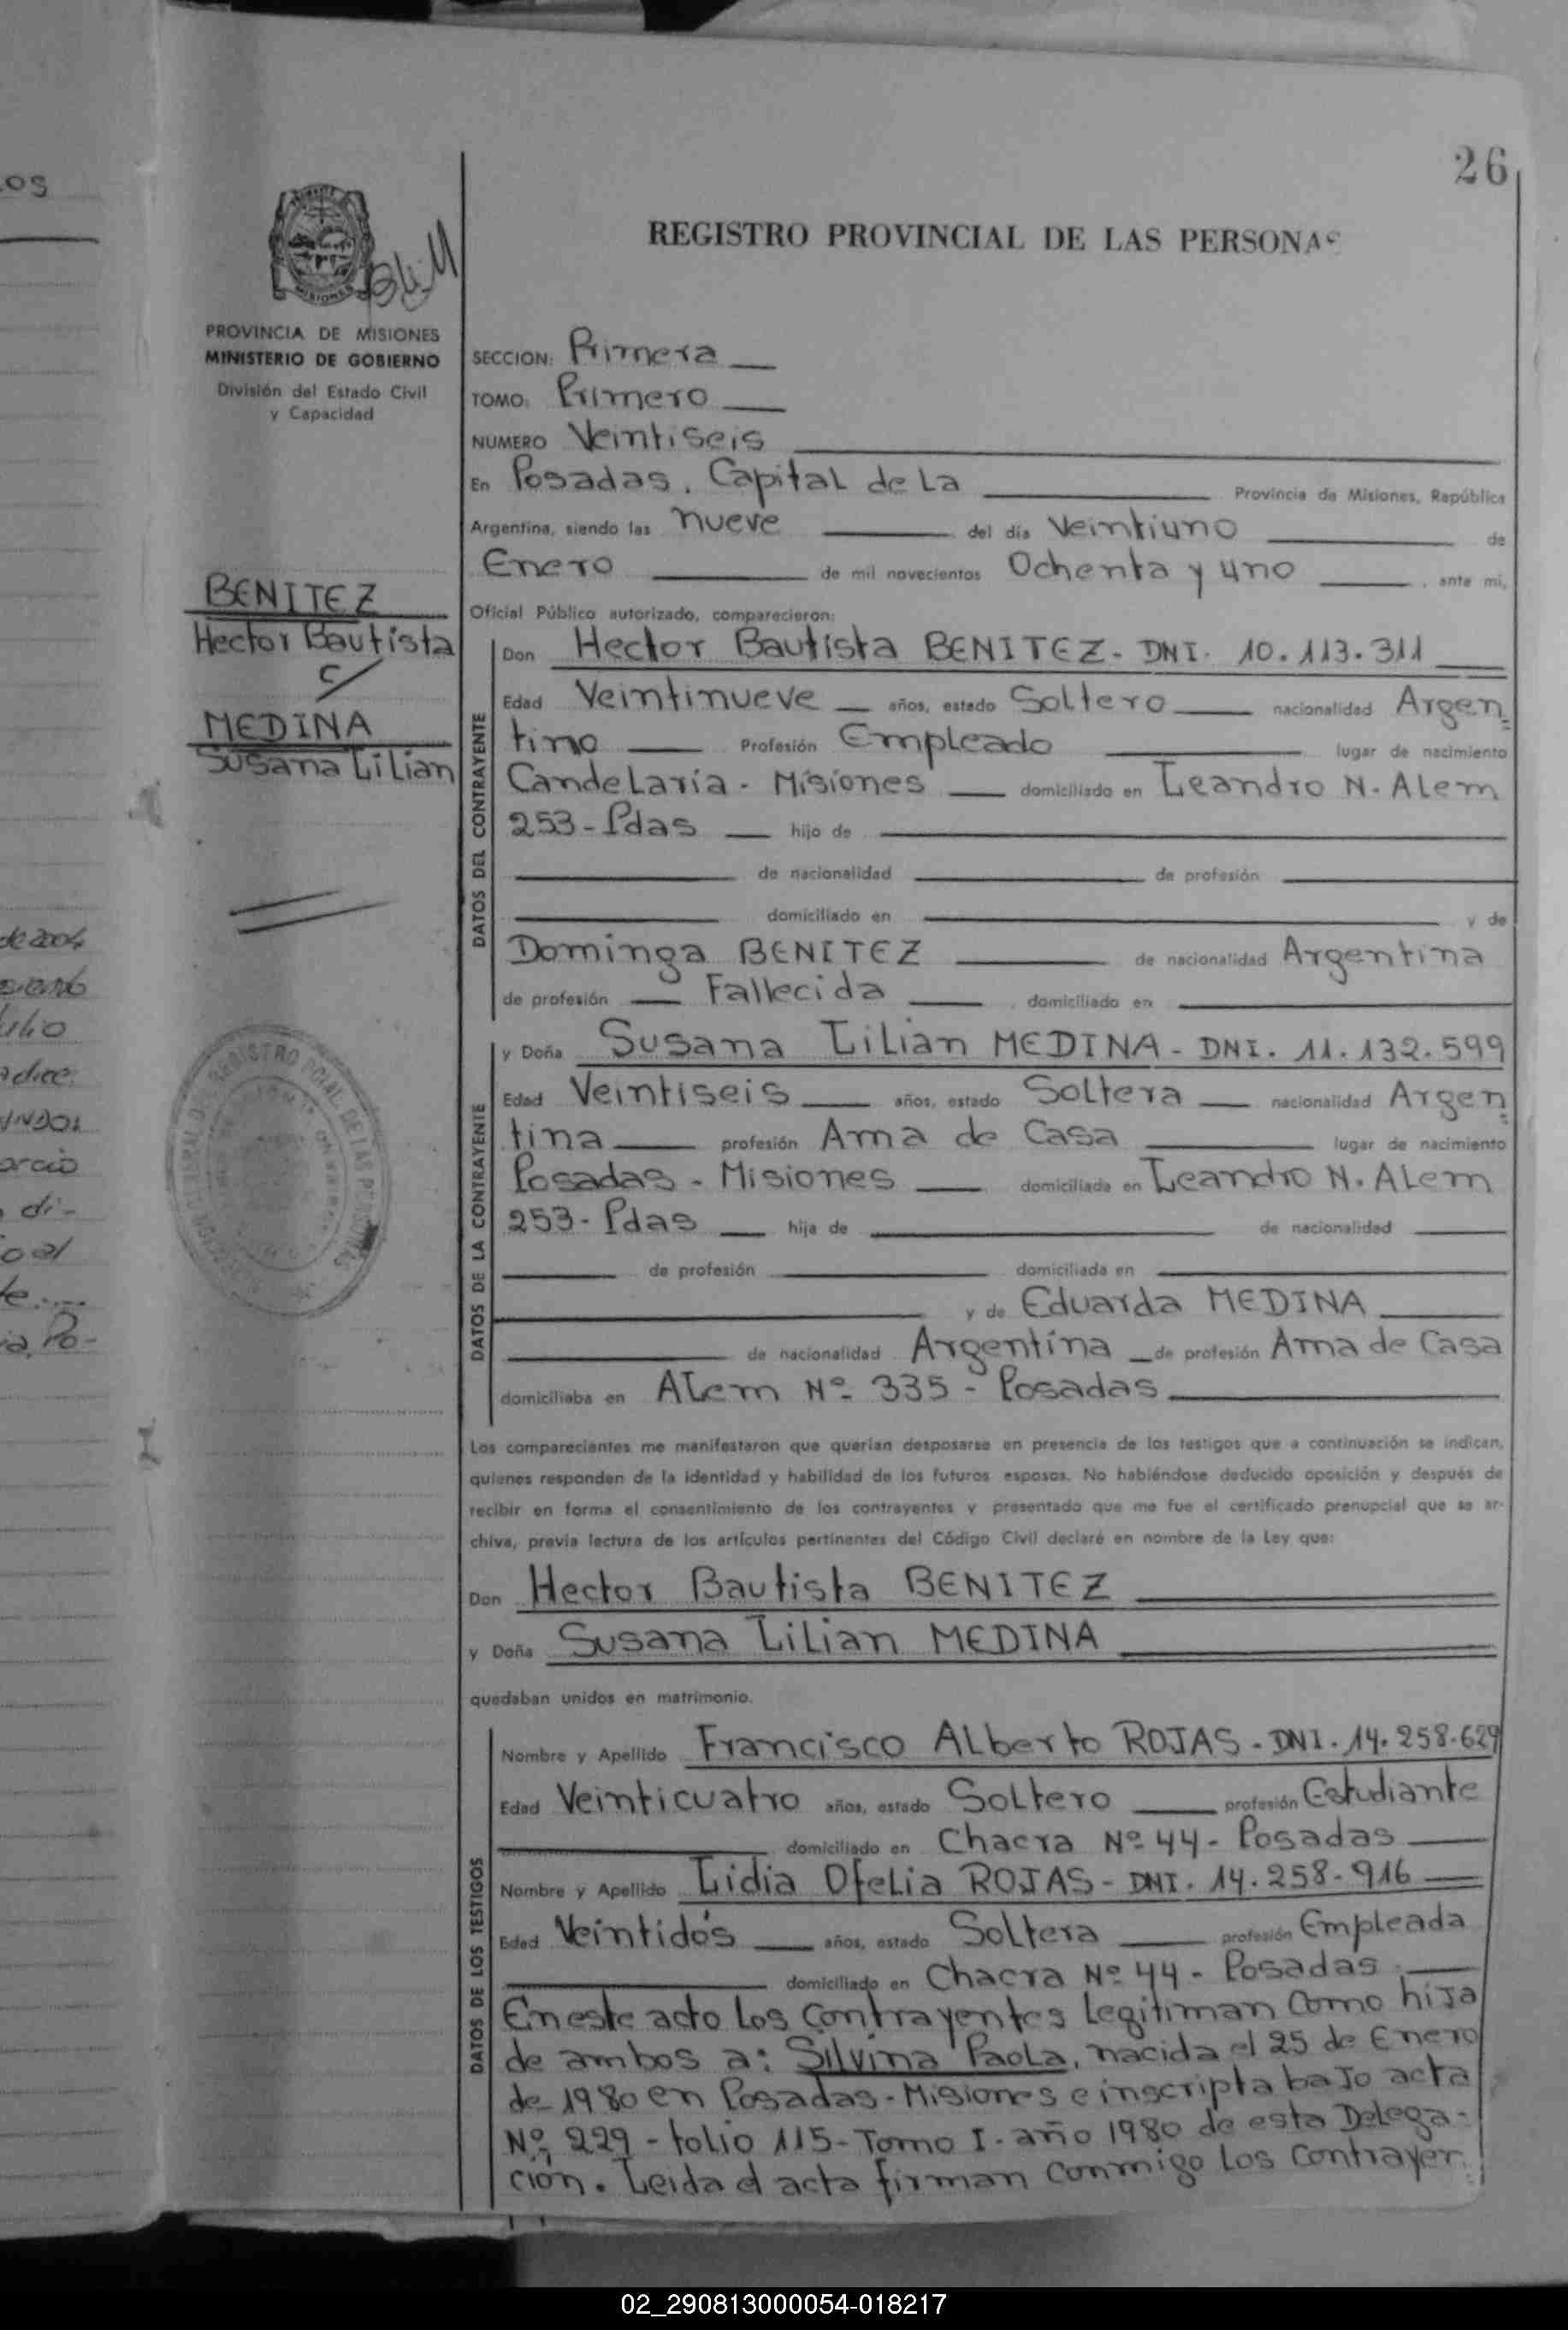 26
REGISTRO PROVINCIAL DE LAS PERSONAS
MISIONES
PROVINCIA DE MISIONES
MINISTERIO DE GOBIERNO
División del Estado Civil
y Capacidad
SECCION: Primera
TOMO: Primero
NUMERO Veintiseis
En Posadas, Capital de La Provincia de Misiones, República
Argentina, siendo las nueve del día Veintiuno de
Enero de mil novecientos Ochenta y uno, ante mi,
Oficial Público autorizado, comparecieron:
BENITEZ
Hector Bautista
c/
MEDINA
Susana Lilian
DATOS DEL CONTRAYENTE
Don Hector Bautista BENITEZ - DNI. 10.113.311
Edad Veintinueve años, estado Soltero nacionalidad Argen=
tino Profesión Empleado lugar de nacimiento
Candelaria - Misiones domiciliado en Leandro N. Alem
253 - Pdas hijo de
de nacionalidad de profesión
domiciliado en y de
Dominga BENITEZ de nacionalidad Argentina
de profesión Fallecida, domiciliado en
DATOS DE LA CONTRAYENTE
y Doña Susana Lilian MEDINA - DNI. 11.132.599
Edad Veintiseis años, estado Soltera nacionalidad Argen=
tina profesión Ama de Casa lugar de nacimiento
Posadas - Misiones domiciliada en Leandro N. Alem
253 - Pdas hija de de nacionalidad
de profesión domiciliada en
y de Eduarda MEDINA
de nacionalidad Argentina de profesión Ama de Casa
domiciliaba en Alem Nº 335 - Posadas
Los comparecientes me manifestaron que querían desposarse en presencia de los testigos que a continuación se indican,
quienes responden de la identidad y habilidad de los futuros esposos. No habiéndose deducido oposición y después de
recibir en forma el consentimiento de los contrayentes y presentado que me fue el certificado prenupcial que se ar-
chiva, previa lectura de los artículos pertinentes del Código Civil declaré en nombre de la Ley que:
Don Hector Bautista BENITEZ
y Doña Susana Lilian MEDINA
quedaban unidos en matrimonio.
DATOS DE LOS TESTIGOS
Nombre y Apellido Francisco Alberto ROJAS - DNI. 14.258.629
Edad Veinticuatro años, estado Soltero profesión Estudiante
domiciliado en Chacra Nº 44 - Posadas
Nombre y Apellido Lidia Ofelia ROJAS - DNI. 14.258.916
Edad Veintidós años, estado Soltera profesión Empleada
domiciliado en Chacra Nº 44 - Posadas.
En este acto Los Contrayentes Legitiman como hija
de ambos a: Silvina Paola, nacida el 25 de Enero
de 1980 en Posadas - Misiones e inscripta bajo acta
Nº 229 - folio 115 - Tomo I - año 1980 de esta Delega-
ción. Leida el acta firman conmigo los contrayen=
02_290813000054-018217